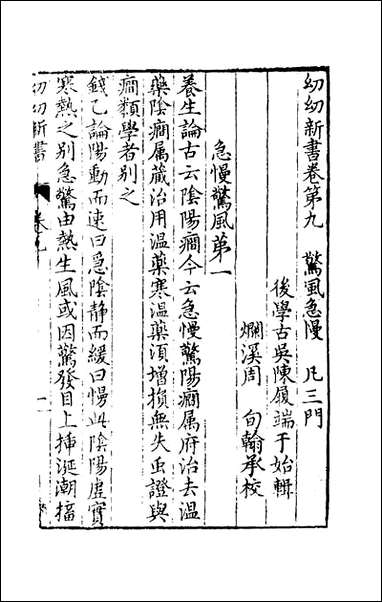 幼幼新書卷第九　驚風急慢　凡三門
後學古吳陳履端于始輯
爛溪周　旬翰承校
急慢驚風第一
養生論古云陰陽癇今云急慢驚陽癇属府治去温
藥陰癇属蔵治用温藥寒温藥須增損無失䖝證與
癇類學者别之
錢乙論陽動而速曰急陰静而緩曰慢此陰陽虚實
寒熱之别急驚由熱生風或因驚發目上揷涎潮搐
幼幼新書　卷九　一